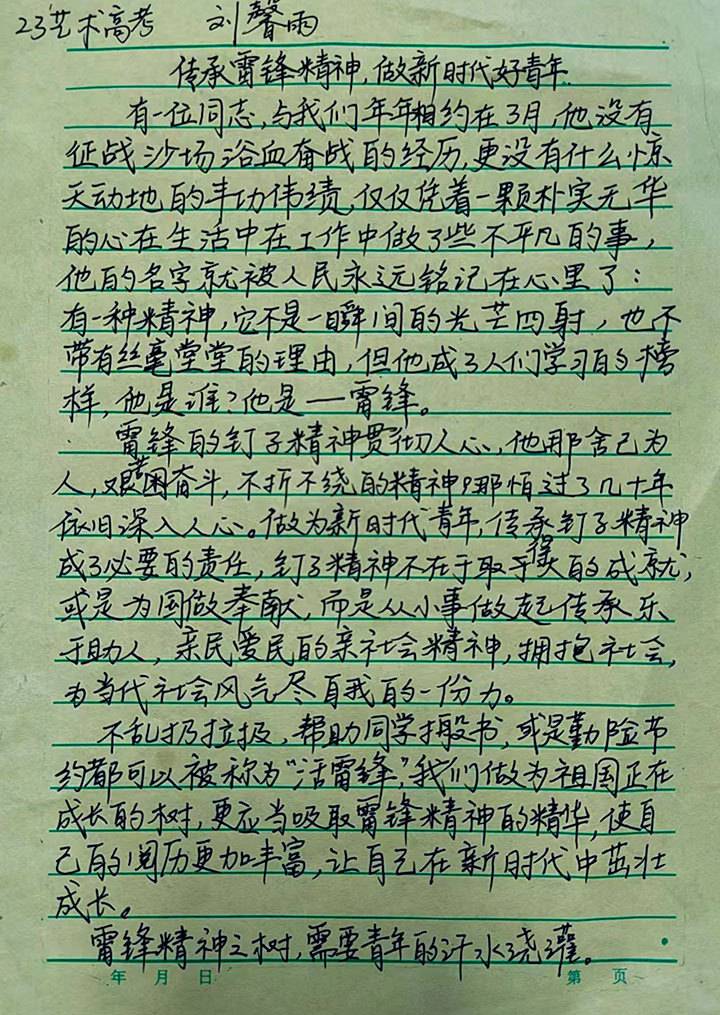 23艺术高考 刘馨雨
传承雷锋精神,做新时代好青年.
有一位同志,与我们年年相约在3月,他没有
征战沙场浴血奋战的经历,更没有什么惊
天动地的丰功伟绩,仅仅凭着一颗朴实无华
的心在生活中在工作中做了些不平凡的事,
他的名字就被人民永远铭记在心里了:
有一种精神,它不是一瞬间的光芒四射,也不
带有丝毫堂堂的理由,但他成了人们学习的榜
样,他是谁?他是——雷锋。
雷锋的钉子精神贯彻人心,他那舍己为
人,艰苦奋斗,不折不绕的精神,哪怕过了几十年
依旧深入人心。做为新时代青年,传承钉子精神
成了必要的责任,钉子精神不在于取得的成就,
或是为国做奉献,而是从小事做起传承乐
于助人,亲民爱民的亲社会精神,拥抱社会,
为当代社会风气尽自我的一份力。
不乱扔垃圾,帮助同学搬书,或是勤险节
约都可以被称为“活雷锋”,我们做为祖国正在
成长的树,更应当吸取雷锋精神的精华,使自
己的阅历更加丰富,让自己在新时代中茁壮
成长。
雷锋精神之树,需要青年的汗水浇灌。
年 月 日 第 页